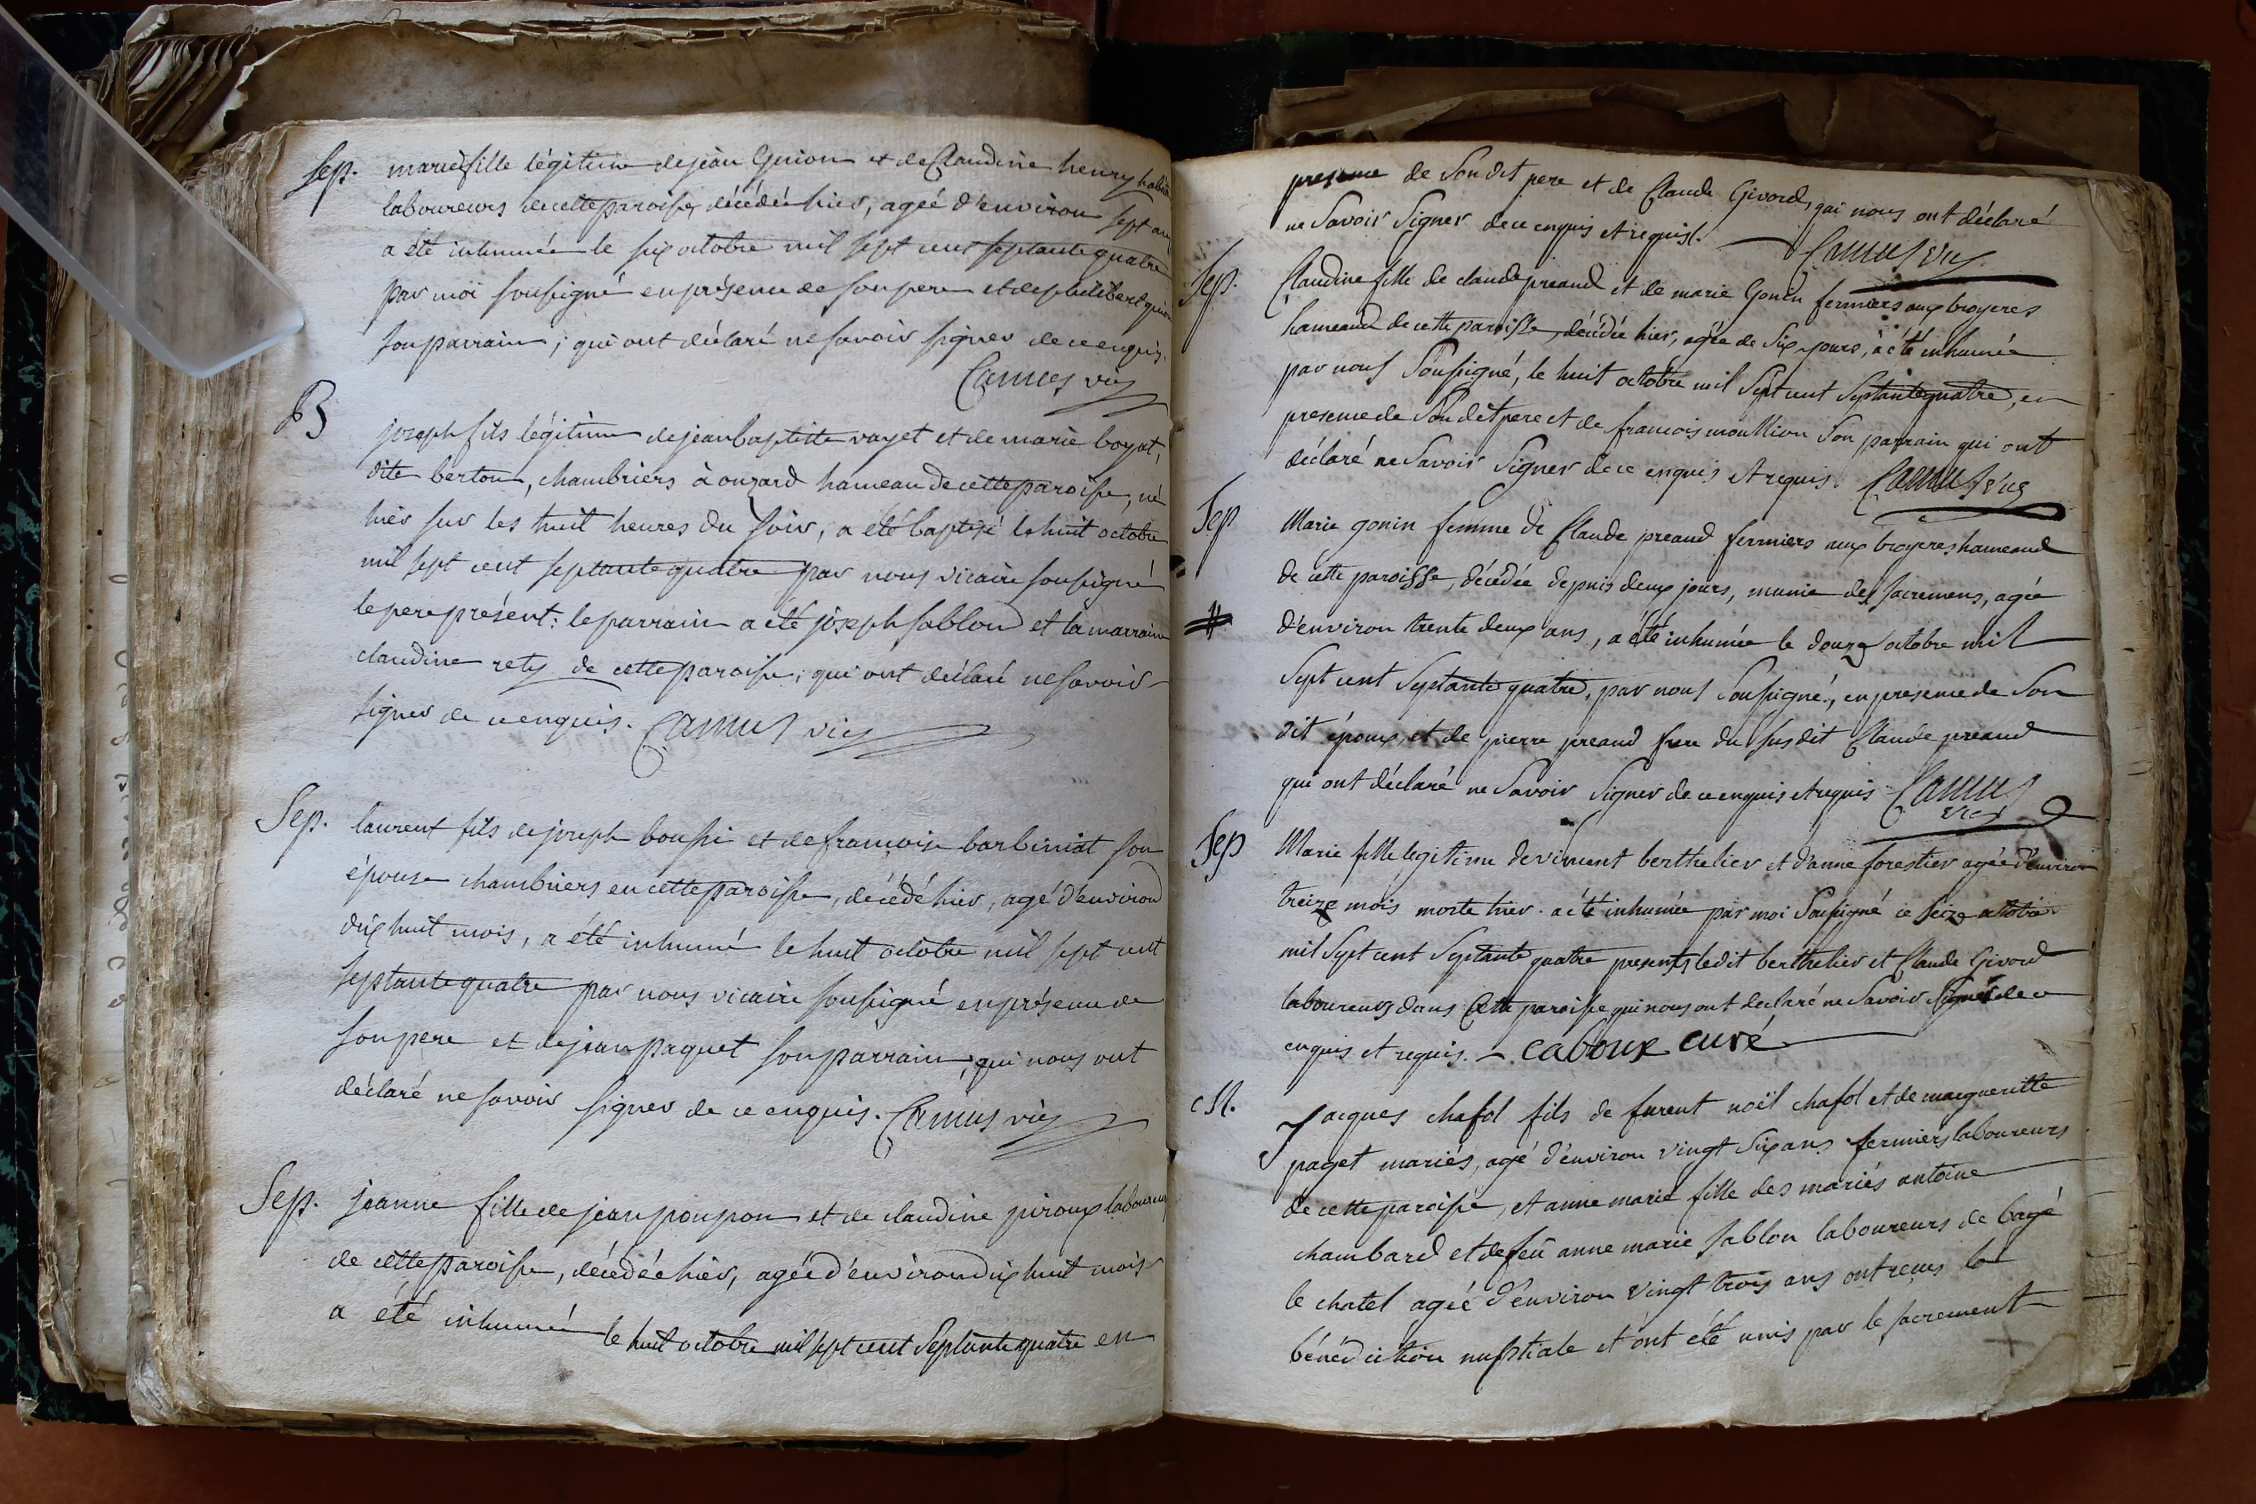 Sep. marie fille légitime de jean Guion et de Claudine henry
laboureurs de cette paroisse, décédée hier, agée d'environ sept ans
a été inhumée le six octobre mil sept cent septante quatre
par moi soussigné en présence de son pere et de philibert guion
son parrain ; qui ont déclaré ne savoir signer de ce enquis.
Camus vic
B joseph fils légitime de jean baptiste vayet et de marie boyat,
dite berton, chambriers à ouzard hameau de cette paroisse, né
hier sur les huit heures du soir, a été baptisé le huit octobre
mil sept cent septante quatre par nous vicaire soussigné
le pere présent : le parrain a été joseph sablon et la marraine
claudine rety de cette paroisse, qui ont déclaré ne savoir
signer de ce enquis. Camus vic
Sep. laurent fils de joseph boussi et de francoise barbiniat son
épouse chambriers en cette paroisse, décédé hier, agé d'environ
dix huit mois, a été inhumé le huit octobre mil sept cent
septante quatre par nous vicaire soussigné en présence de
son pere et de jean paquet son parrain, qui nous ont
déclaré ne savoir signer de ce enquis. Camus vic
Sep. jeanne fille de jean poupon et de claudine piroux laboureurs
de cette paroisse, décédée hier, agée d'environ dix huit mois
a été inhumé le huit octobre mil sept cent septante quatre en
presence de Son dit pere et de Claude Givord, qui nous ont déclaré
ne Savoir Signer de ce enquis et requis. Camus vic
Sep. Claudine fille de claude preaud et de marie Gonin fermiers aux broyeres
hameaud de cette paroisse, décédée hier, agée de Six jours, a été inhumée
par nous Soussigné, le huit octobre mil Sept cent Septante quatre, en
presence de Son dit pere et de francois moullion Son parrain qui ont
déclaré ne Savoir Signer de ce enquis et requis. Camus vic
Sep Marie gonin femme de Claude preaud fermiers aux broyeres hameaud
de cette paroisse, décédée depuis deux jours, munie des sacremens, agée
d'environ trente deux ans, a été inhumée le douze octobre mil
Sept cent Septante quatre, par nous Soussigné, en presence de Son
dit époux, et de pierre preaud frere du susdit Claude preaud
qui ont déclaré ne Savoir Signer de ce enquis et requis Camus
vic
Sep Marie fille legitime de vincent berthelier et d'anne forestier agée d'environ
treize mois morte hier. a été inhumée par moi Soussigné ce seize octobre
mil Sept cent Septante quatre presents ledit berthelier et Claude Givord
laboureurs dans Cette paroisse qui nous ont declaré ne Savoir Signer de ce
enquis et requis. caboux curé
M. Jacques chafol fils de furent noël chafol et de marguerite
paget mariés, agé d'environ vingt Six ans fermiers laboureurs
de cette paroisse, et anne marie fille des mariés antoine
chambard et de feü anne marie sablon laboureurs de bagé
le chatel agée d'environ vingt trois ans ont reçus la
bénédiction nuptiale et ont été unis par le sacrement